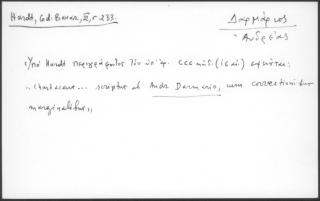 Hardt, Cod. Bavar., III, σ. 233.
Δαρμάριος
Ἀνδρέας
Hardt περιγράφοντος τὸν ὑπ' ἀρ.
"chartaceus... scriptus ab Andr Darmario, cum correctionibus
marginalibus"